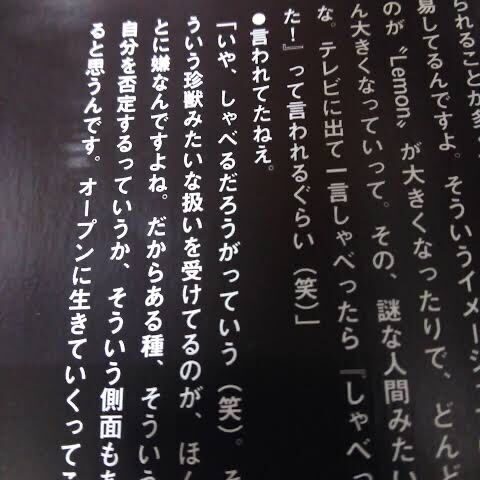 られることが多く
易してるんですよ。そういうイメージ
のが〝Lemon〟が大きくなったりで、どんど
ん大きくなっていって。その、謎な人間みたい
な。テレビに出て一言しゃべったら『しゃべっ
た!』って言われるぐらい（笑）」
●言われてたねえ。
「いや、しゃべるだろうがっていう（笑）。そ
ういう珍獣みたいな扱いを受けてるのが、ほん
とに嫌なんですよね。だからある種、そういう
自分を否定するっていうか、そういう側面もあ
ると思うんです。オープンに生きていくってこ